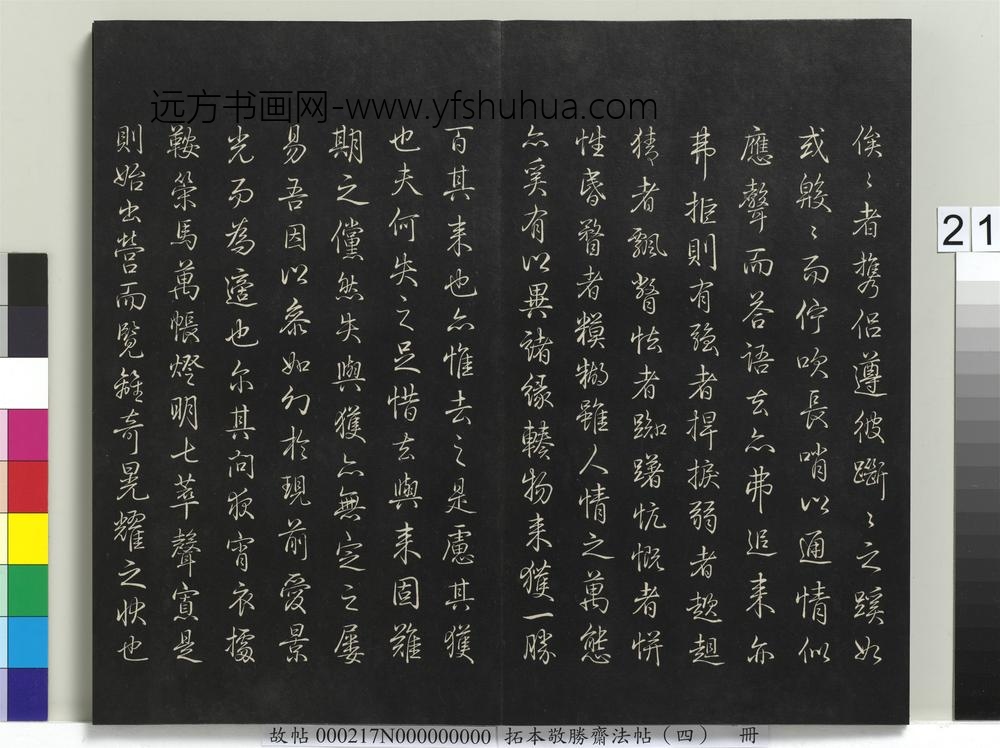 远方书画网-www.yfshuhua.com
俟々者携侣遵彼斷々之蹊如
或毅々而佇吹長哨以通情似
應聲而答語去亦弗追来亦
弗拒則有强者捍捩弱者趑趄
猜者飄瞥怯者踟躇忼慨者恲
性昏瞀者模糊雖人情之萬態
亦奚有以異諸缘轃物来獲一勝
百其来也亦惟去之是慮其獲
也夫何失之足惜去與来固難
期之儻然失與獲亦無定之屡
易吾因以叅如幻於現前愛景
光而為遊也尔其问夜宵衣據
鞍策馬萬帳燈明七萃聲寘是
則始出營而覽雞竒晃耀之映也
21
故帖 000217N000000000 拓本敬勝齋法帖（四） 冊